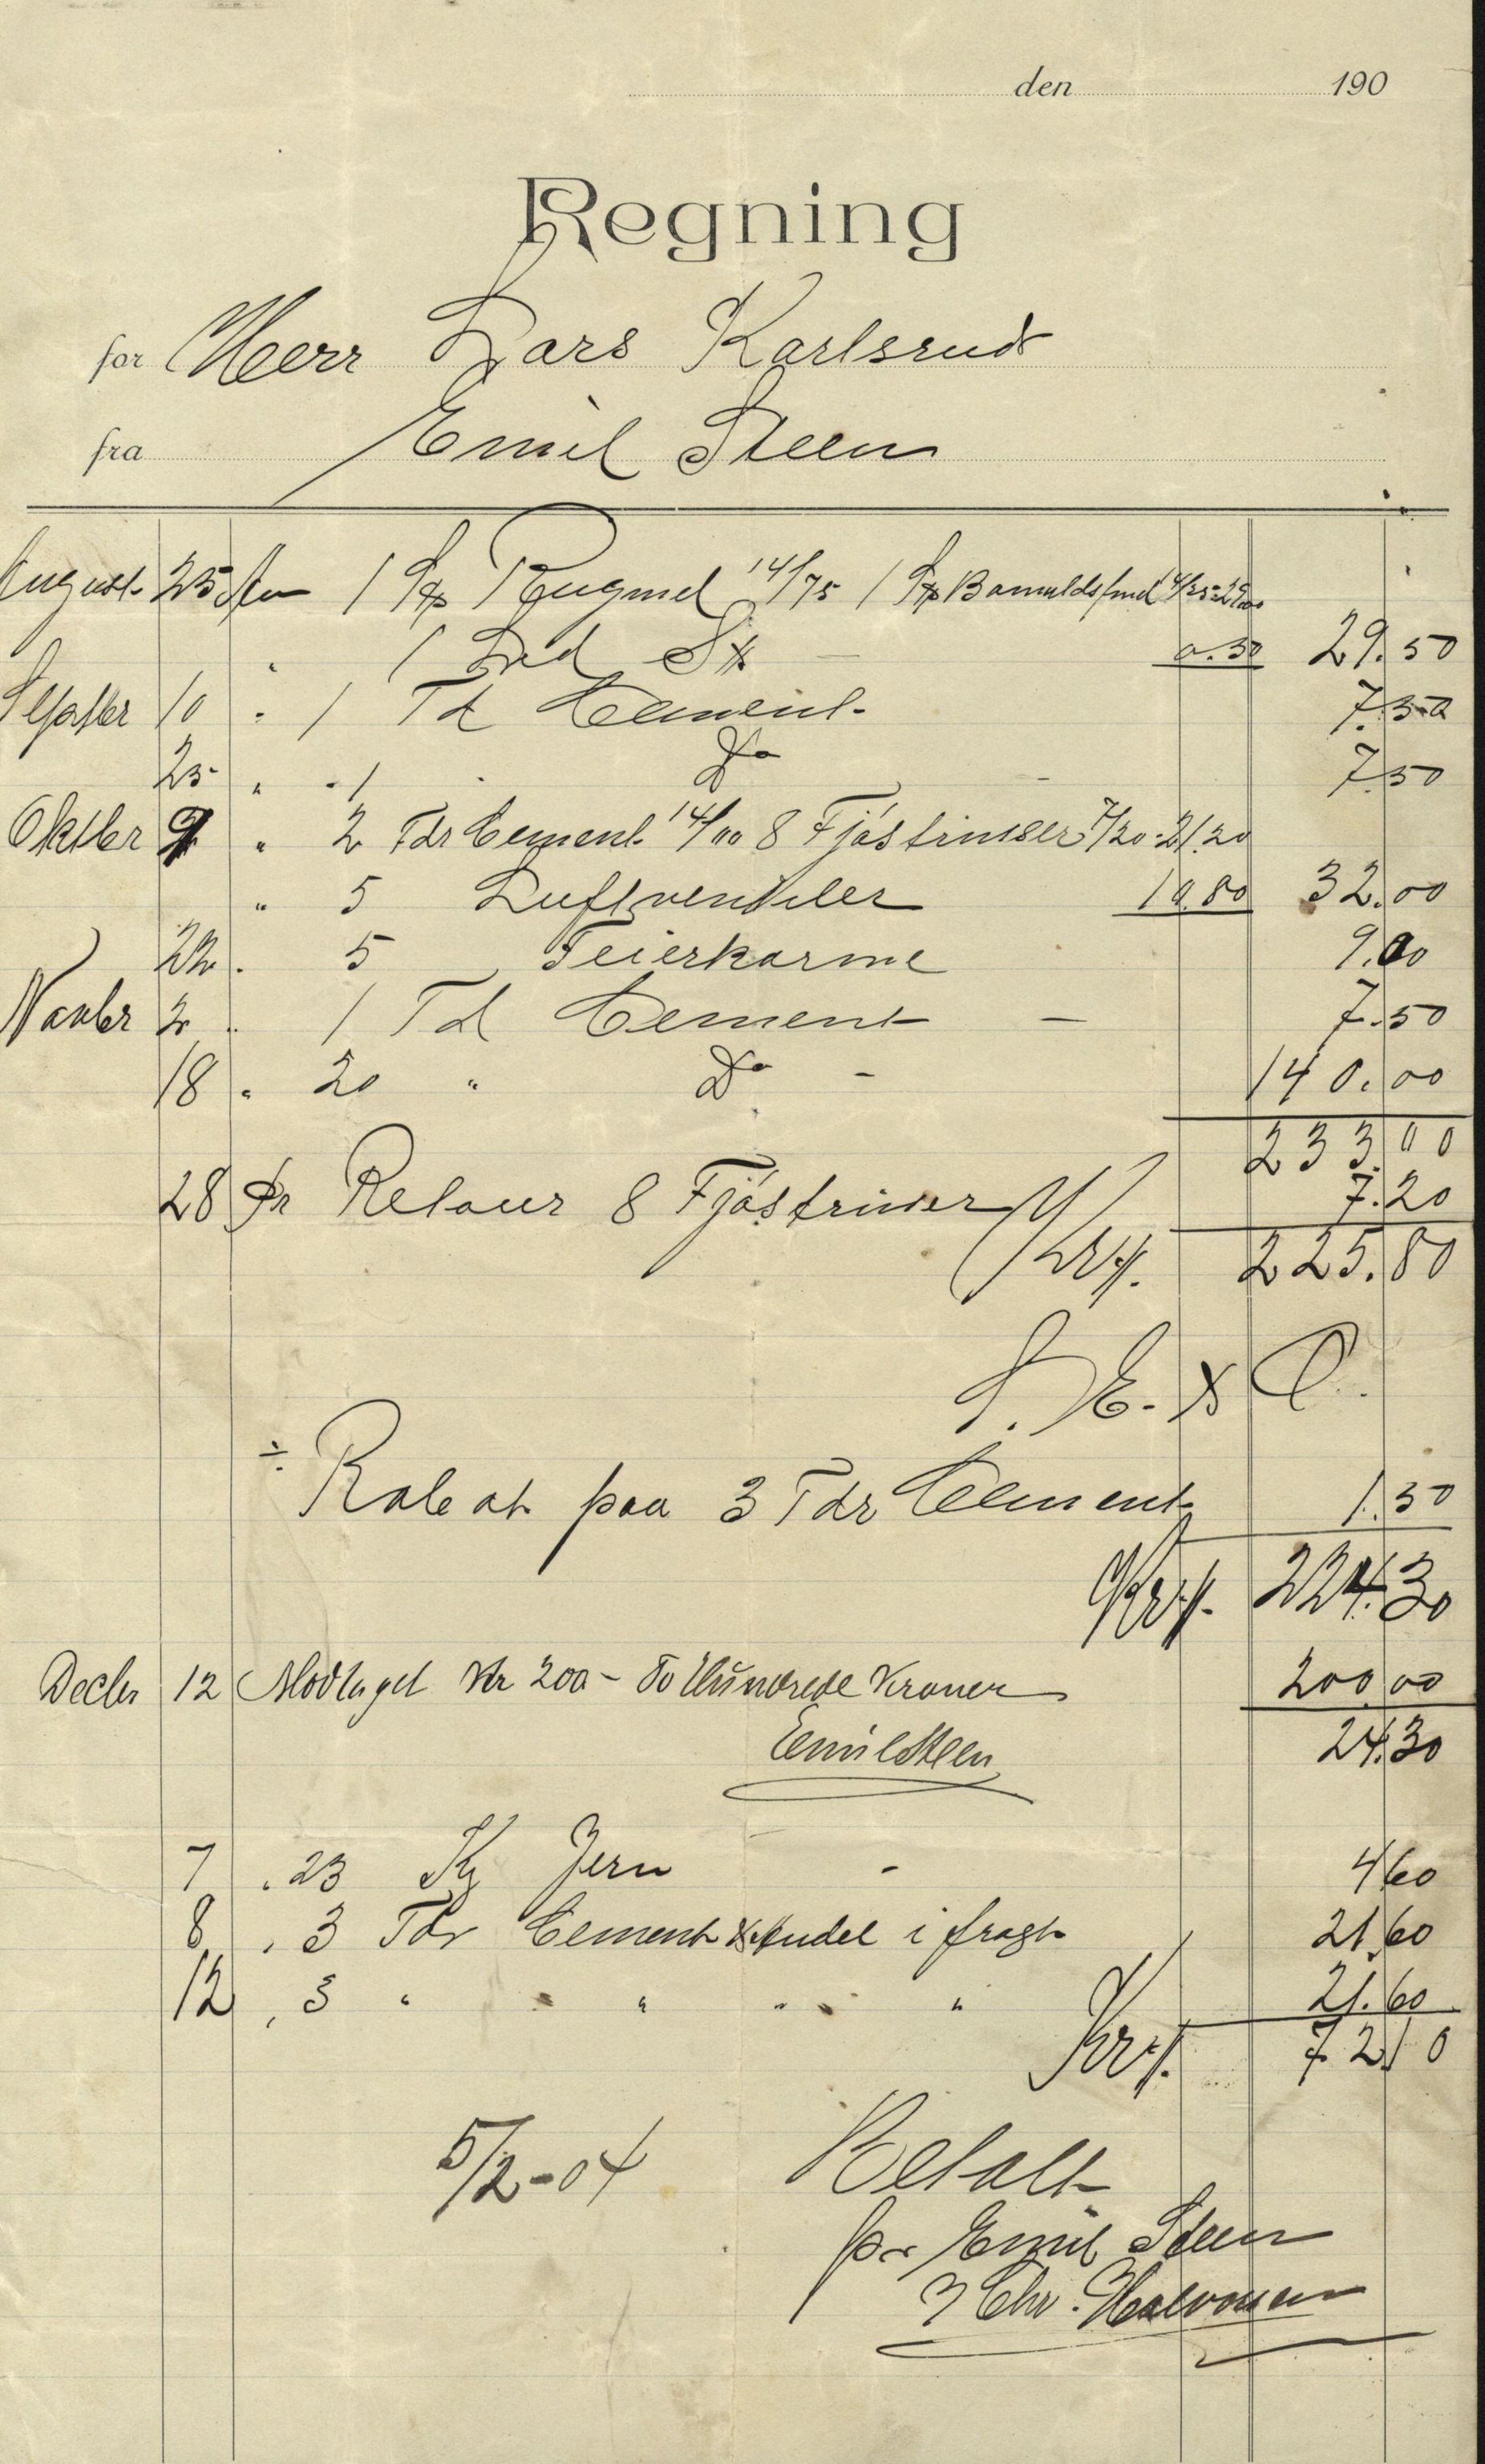 den 190
Regning
for Herr Lars Karlsrud
fra Emil Steen
August 25 1 Rugmel 14/75 1 14/25 = 29.00
" 1 0.50 29.50
10 " 1 Td Cement 7.50
25 " - 1 Do 7.50
Oktbr 9 " 2 Tdr Cement 14/00 8 Fjøstrinser 7/20 = 21.20
" 5 Luftventiler 10.80 32.00
22 " 5 Feierkarme 9.00
Novbr 2 " 1 Td Cement - 7.50
18 " 20 " Do - 140.00
233.00
28 Pr Retour 8 Fjøstrinser 7.20
Kr 225.80
S. E. & O.
÷ Rabat paa 3 Tdr Cement 1.50
Kr 224.30
Decbr 12 Modtaget Kr 200 - To Hundrede Kroner 200.00
Emil Steen 24.30
7 " 23 Kg Jern - 4.60
8 " 3 Tdr Cement & Andel i fragt 21.60
12 " 3 " " " " " 21.60
Kr 72.10
5/2-04 Betalt
pr Emil Steen
Chr. Halvorsen